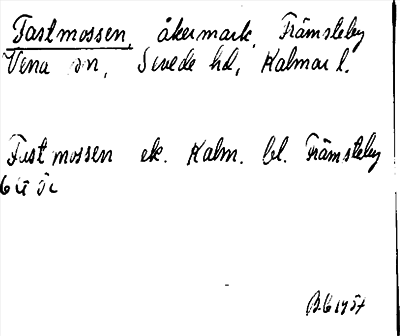 Fastmossen, åkermark, Främsteby
Vena sn, Sevede hd, Kalmar l.
Fastmossen ek. Kalm. bl. Främsteby